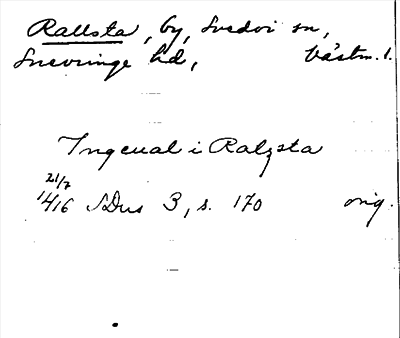 Rallsta, by, Svedvi sn,
Snevringe hd, Västm. l.
Ingeual i Ralzsta
21/7
1416 SDns 3, s. 170 orig.